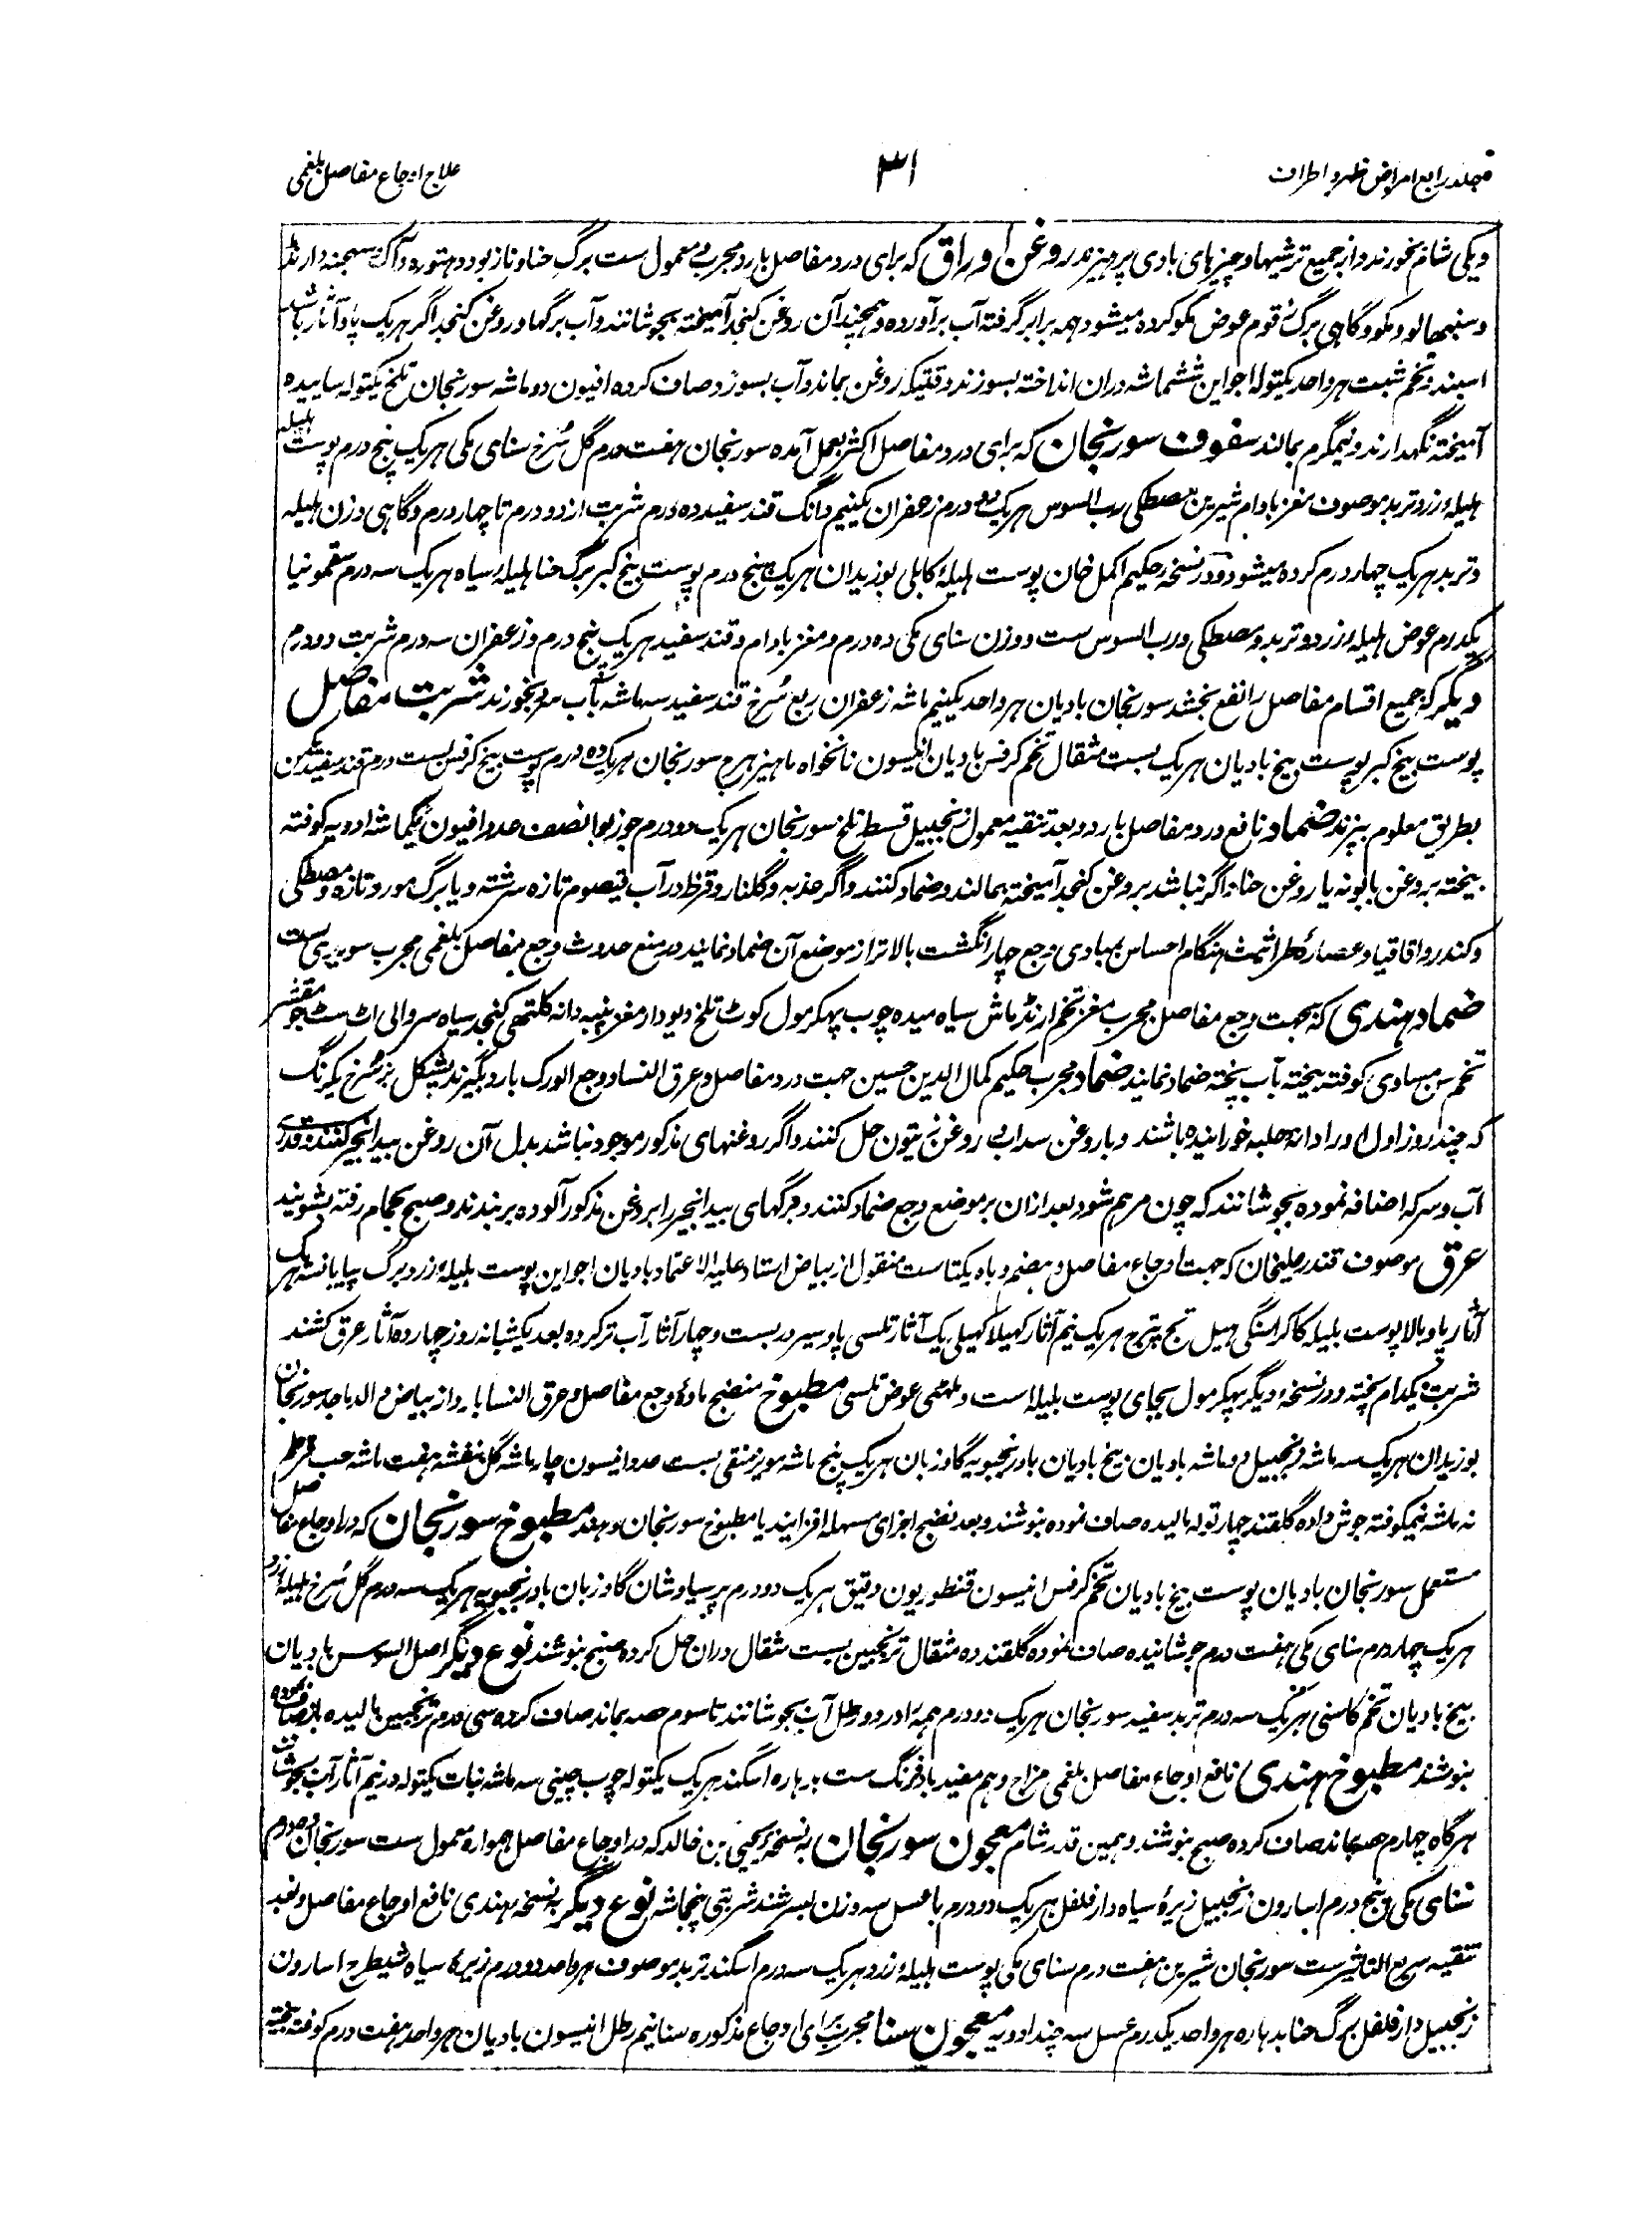 مجلد رابع امراض ظهر و اطراف
۳۱
علاج اوجاع مفاصل بلغمی
و یکی شام بخورند و از جمیع ترشیها و چیزهای بادی پرهیزند روغن اوراق که برای درد مفاصل بارد مجرب و معمول ست برگ حنا و نازبو و دهتوره و آک و سهجنه و ارنڈ
و سنبهالو و مکو و گاهی برگ زقوم عوض مکو کرده میشود همه برابر گرفته آب برآورده و همچند آن روغن کنجد آمیخته بجوشانند و آب برگها و روغن کنجد اگر هریک پاو آثار باشد
اسپند و تخم شبت هر واحد یکتوله اجواین ششماشه دران انداخته بسوزند وقتیکه روغن بماند و آب بسوزد صاف کرده افیون دو ماشه سورنجان تلخ یکتوله ساییده
آمیخته نگهدارند و نیمگرم بمالند سفوف سورنجان که برای درد مفاصل اکثر بعمل آمده سورنجان هفت درم گل سرخ سنای مکی هریک پنج درم پوست هلیله
هلیله زرد و تربد موصوف مغز بادام شیرین مصطکی رب السوس هریک دو درم زعفران یکنیم دانگ قند سفید ده درم شربت از دو درم تا چهار درم و گاهی وزن هلیله
و تربد هریک چهار درم کرده میشود و در نسخه حکیم اکمل خان پوست هلیله کابلی بوزیدان هریک پنج درم پوست بیخ کبر برگ حنا هلیله سیاه هریک سه درم سقمونیا
یکدرم عوض هلیله زرد و تربد و مصطکی و رب السوس ست و وزن سنای مکی ده درم و مغز بادام و قند سفید هریک پنج درم و زعفران سه درم شربت دو درم
دیگر که جمیع اقسام مفاصل را نفع بخشد سورنجان بادیان هر واحد یکنیم ماشه زعفران ربع سرخ قند سفید سه ماشه بآب سرد بخورند شربت مفاصل
پوست بیخ کبر پوست بیخ بادیان هریک بست مثقال تخم کرفس بادیان انیسون نانخواه ماهیزهرج سورنجان هریک ده درم پوست بیخ کرفس بست درم قند سفید
بطریق معلوم بپزند ضماد نافع درد مفاصل بارد و بعد تنقیه معمول زنجبیل قسط تلخ سورنجان هریک دو درم جوز بوا نصف عدد افیون یکماشه ادویه کوفته
بیخته بروغن بابونه یا روغن حنا و اگر نباشد بروغن کنجد آمیخته بمالند و ضماد کنند و اگر عذبه و گلنار و قرظ در آب قیصوم تازه سرشته و یا برگ مورد تازه و مصطکی
و کندر و اقاقیا و عصاره طراثیث هنگام احساس بمبادی وجع چار انگشت بالاتر از موضع آن ضماد نمایند در منع حدوث وجع مفاصل بلغمی مجرب سویدی ست
ضماد هندی که بجهت وجع مفاصل مجرب مغز تخم ارنڈ ماش سیاه میده چوب پهکرمول کوٹ تلخ دیودار مغز پنبه دانه کلتهی کنجد سیاه سروالی اٹ سٹ جو مقشر
تخم سن مساوی کوفته بیخته بآب پخته ضماد نمایند ضماد مجرب حکیم کمال الدین حسین جهت درد مفاصل و عرق النسا و وجع الورک بارد بگیرند پشکل بز سرخ یکرنگ
که چند روز اول او را دانه حلبه خورانیده باشند و با روغن سداب یا روغن زیتون حل کنند و اگر روغنهای مذکور موجود نباشد بدل آن روغن بیدانجیر کنند و قدری
آب و سرکه اضافه نموده بجوشانند که چون مرهم شود بعد ازان بر موضع وجع ضماد کنند و برگهای بیدانجیر را بروغن مذکور آلوده بربندند و صبح بحمام رفته بشویند
عرق موصوف قندر علیخان که جهت اوجاع مفاصل و هضم و باه یکتاست منقول از بیاض استاد علیه الاعتماد بادیان اجواین پوست هلیله زرد برگ هریک
آثار پاو بالا پوست بلیله کاکراسنگی هیل تج پترج هریک نیم آثار کهیلا کهیلی یک آثار تلسی پاو سیر در بست و چار آثار آب تر کرده بعد یکشبانه روز چارده آثار عرق کشند
شربت یکدام پخته و در نسخه دیگر پهکرمول بجای پوست بلیله است و ملهٹی عوض تلسی مطبوخ منضج ماده وجع مفاصل و عرق النسا بارد از بیاض والد ماجد سورنجان
بوزیدان هریک سه ماشه زنجبیل دو ماشه بادیان بیخ بادیان بادرنجبویه گاوزبان هریک پنج ماشه مویز منقی بست عدد انیسون چار ماشه گل بنفشه هفت ماشه حب قرطم
نه ماشه نیمکوفته جوش داده گلقند چهار توله مالیده صاف نموده بنوشند و بعد نضج اجزای مسهله افزایند یا مطبوخ سورنجان دهند مطبوخ سورنجان که در اوجاع مفاصل
مستعمل سورنجان بادیان پوست بیخ بادیان تخم کرفس انیسون قنطوریون دقیق هریک دو درم پرسیاوشان گاوزبان بادرنجبویه هریک سه درم گل سرخ هلیله زرد
هریک چهار درم سنای مکی هفت درم جوشانیده صاف نموده گلقند ده مثقال ترنجبین بست مثقال دران حل کرده صبح بنوشند نوع دیگر اصل السوس بادیان
بیخ بادیان تخم کاسنی هریک سه درم تربد سفید سورنجان هریک دو درم همه را در دو رطل آب بجوشانند تا سوم حصه بماند صاف کرده سی درم ترنجبین مالیده باز صاف نموده
بنوشند مطبوخ هندی نافع اوجاع مفاصل بلغمی مزاج و هم مفید باد فرنگ ست بدهاره اسگند هریک یکتوله چوب چینی سه ماشه نبات یکتوله در نیم آثار آب بجوشانند
هرگاه چهارم حصه بماند صاف کرده صبح بنوشند و همین قدر شام معجون سورنجان به نسخه یحیی بن خالد که در اوجاع مفاصل همواره معمول ست سورنجان ده درم
سنای مکی پنج درم اسارون زنجبیل زیره سیاه دارفلفل هریک دو درم با عسل سه وزن بسرشند شربتی پنجماشه نوع دیگر به نسخه هندی نافع اوجاع مفاصل و بعد
تنقیه سریع التاثیرست سورنجان شیرین هفت درم سنای مکی پوست هلیله زرد هریک سه درم اسگند تربد موصوف هر واحد دو درم زیره سیاه شیطرج اسارون
زنجبیل دارفلفل برگ حنا بدهاره هر واحد یکدرم عسل سه چند ادویه معجون سنا مجرب برای اوجاع مذکوره سنا نیم رطل انیسون بادیان هر واحد هفت درم کوفته بیخته